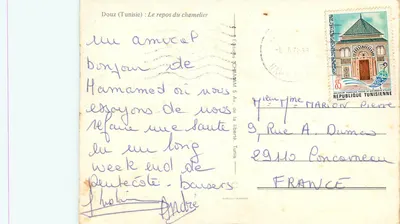 Douz (Tunisie) : Le repos du chamelier
un amical
bonjour de
Hamamed où nous
essayons de nous
refaire une santé
en un long
week end de
pentecôte. Baisers
André
REPUBLIQUE TUNISIENNE
MARION Pierre
9, Rue A. Dumas
29110 Concarneau
FRANCE